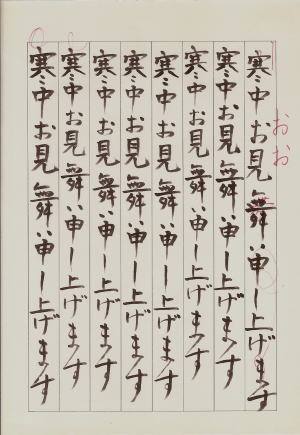 寒中お見舞い申し上げます
寒中お見舞い申し上げます
寒中お見舞い申し上げます
寒中お見舞い申し上げます
寒中お見舞い申し上げます
寒中お見舞い申し上げます
寒中お見舞い申し上げます
寒中お見舞い申し上げます
おお